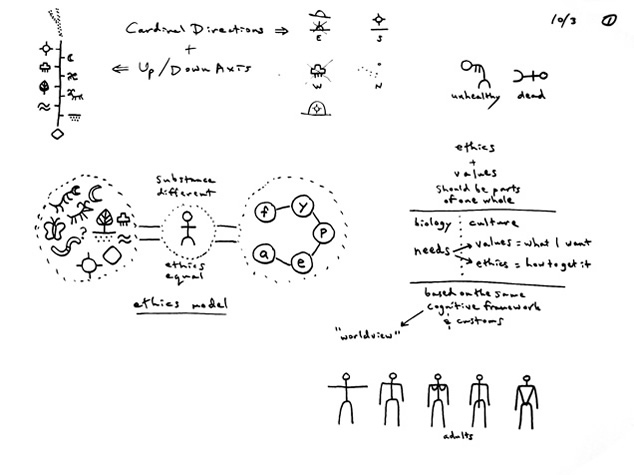 10/3 ①
Cardinal Directions ⇒
+
⇐ Up/Down Axis
E S
W N
unhealthy dead
substance
different
f y p e a
ethics
equal
ethics model
ethics
+
values
should be parts
of one whole
biology culture
needs values = what I want
ethics = how to get it
based on the same
cognitive framework
& customs
"worldview"
adults